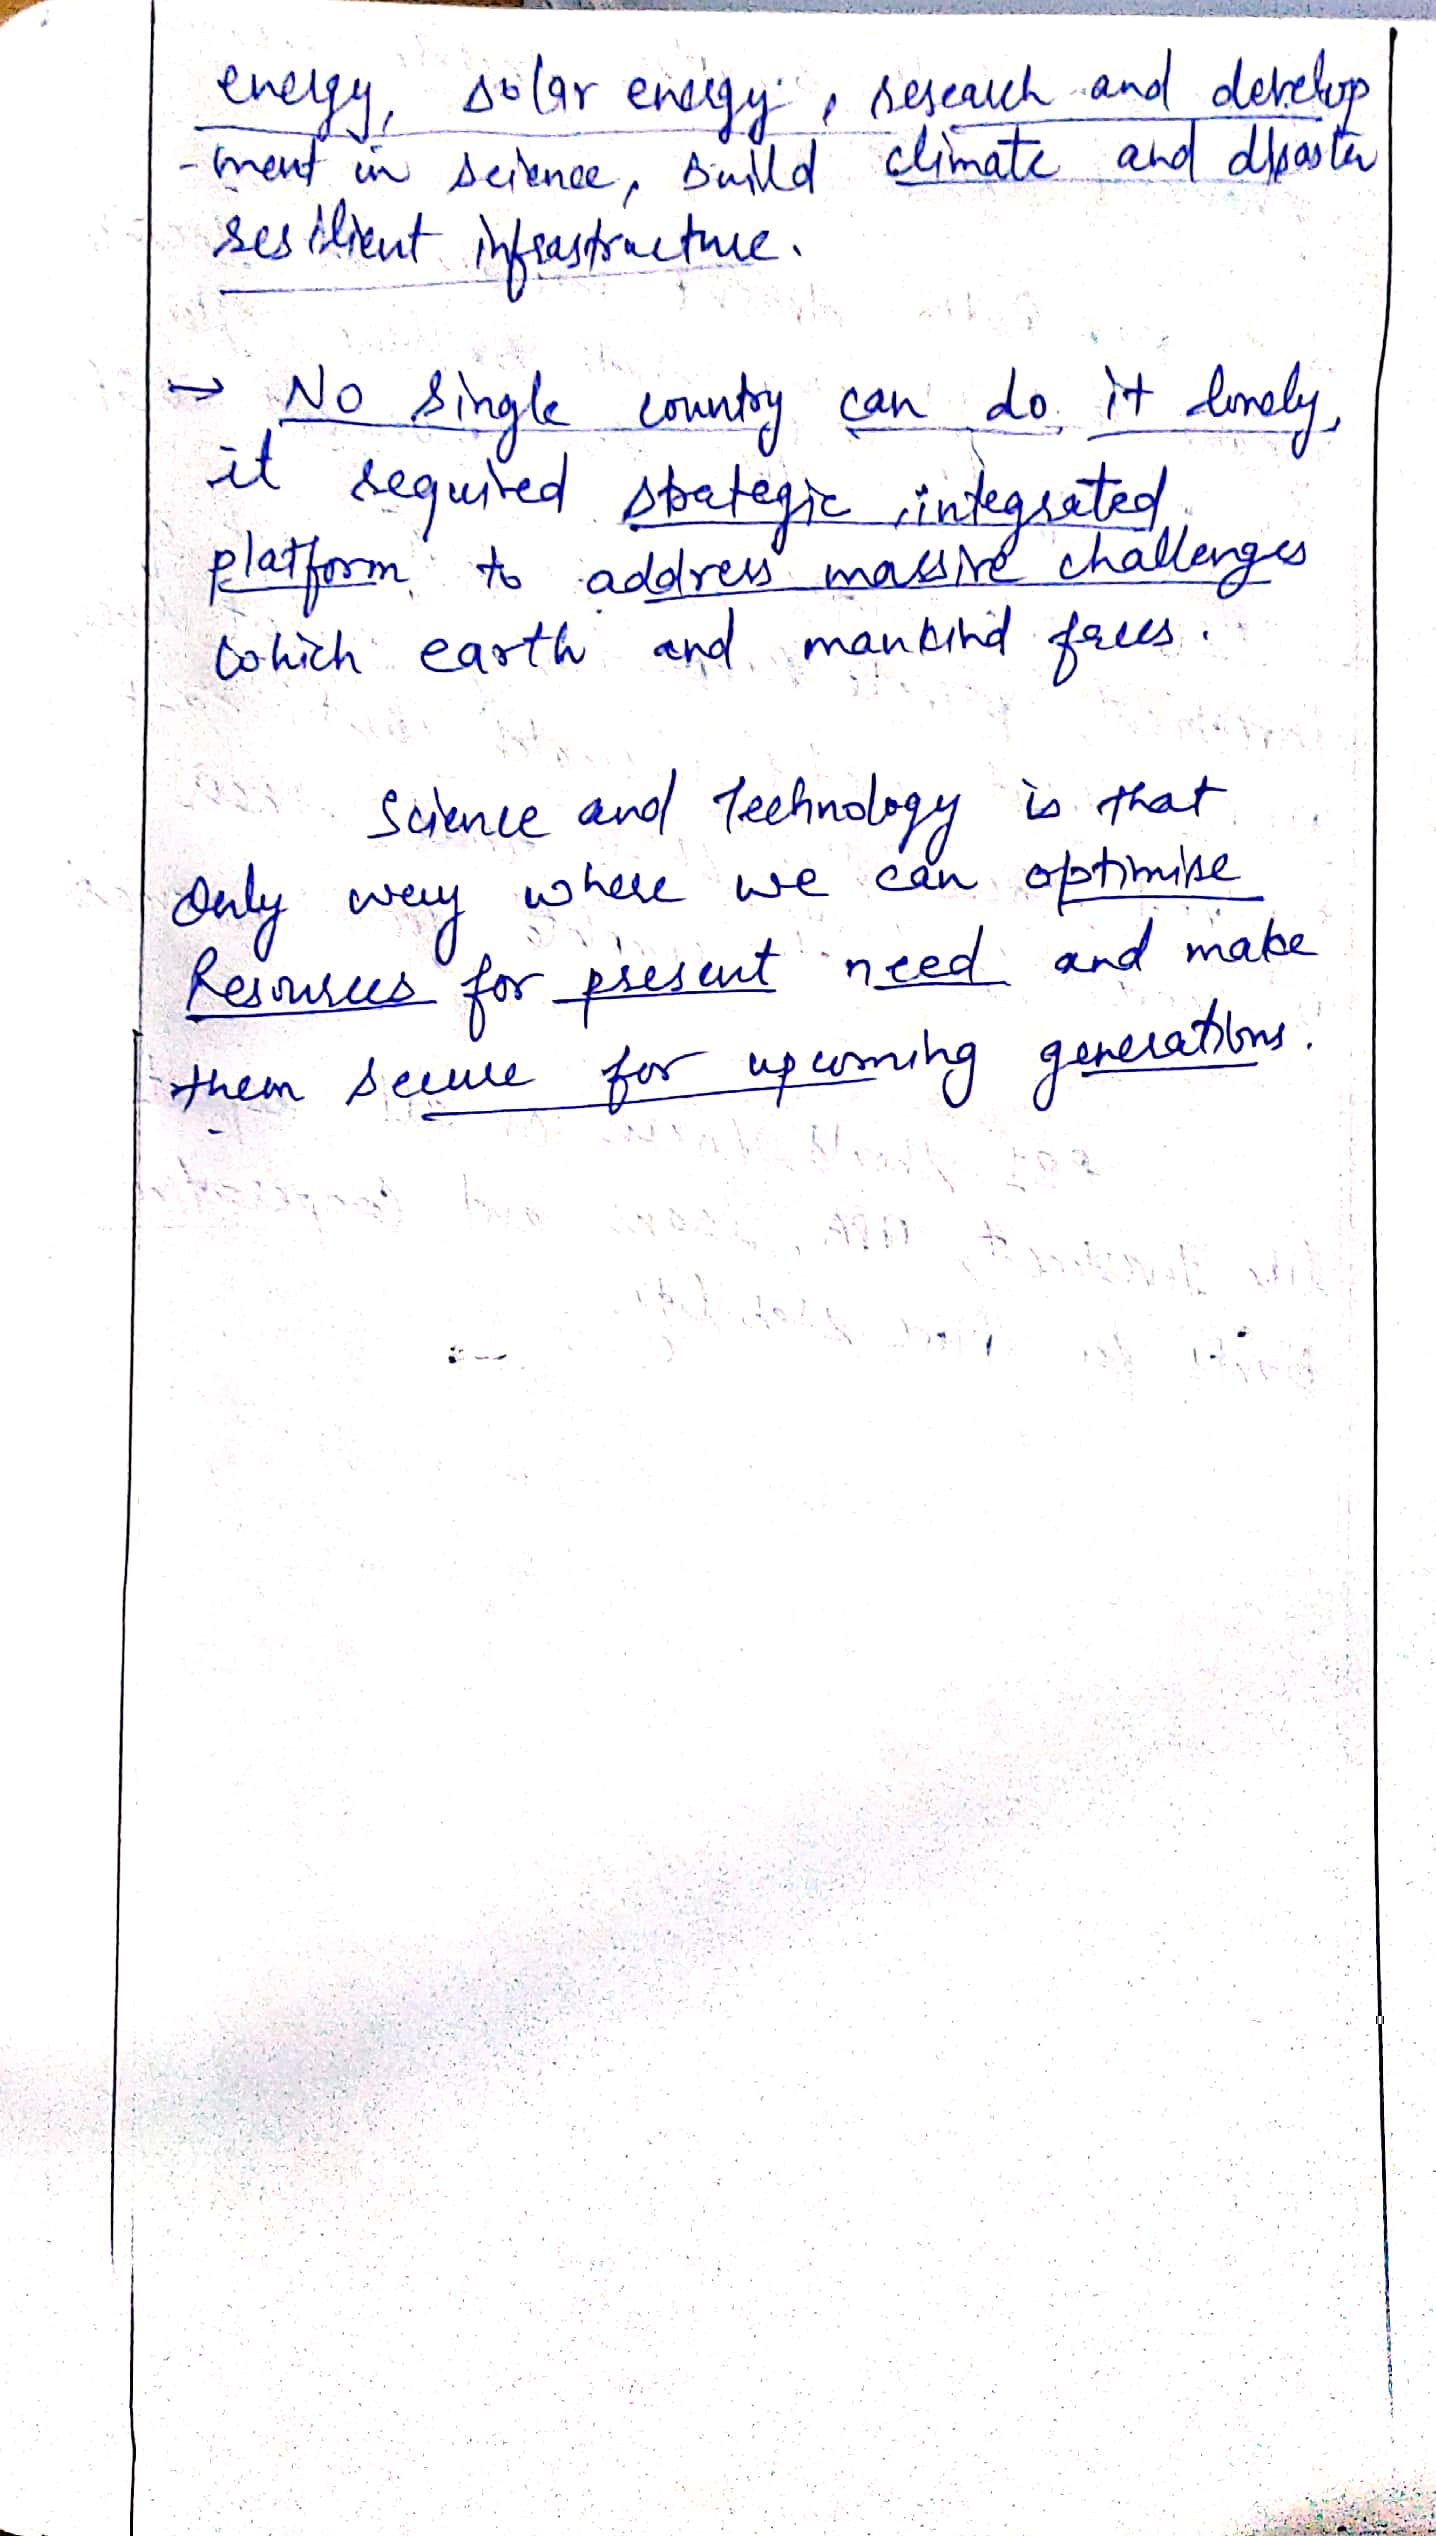 energy, solar energy, research and develop
-ment in science, build climate and disaster
resilient infrastructure.
→ No single country can do it lonely,
it required strategic integrated
platform to address massive challenges
which earth and mankind faces.
Science and Technology is that
only way where we can optimise
Resources for present need and make
them secure for upcoming generations.